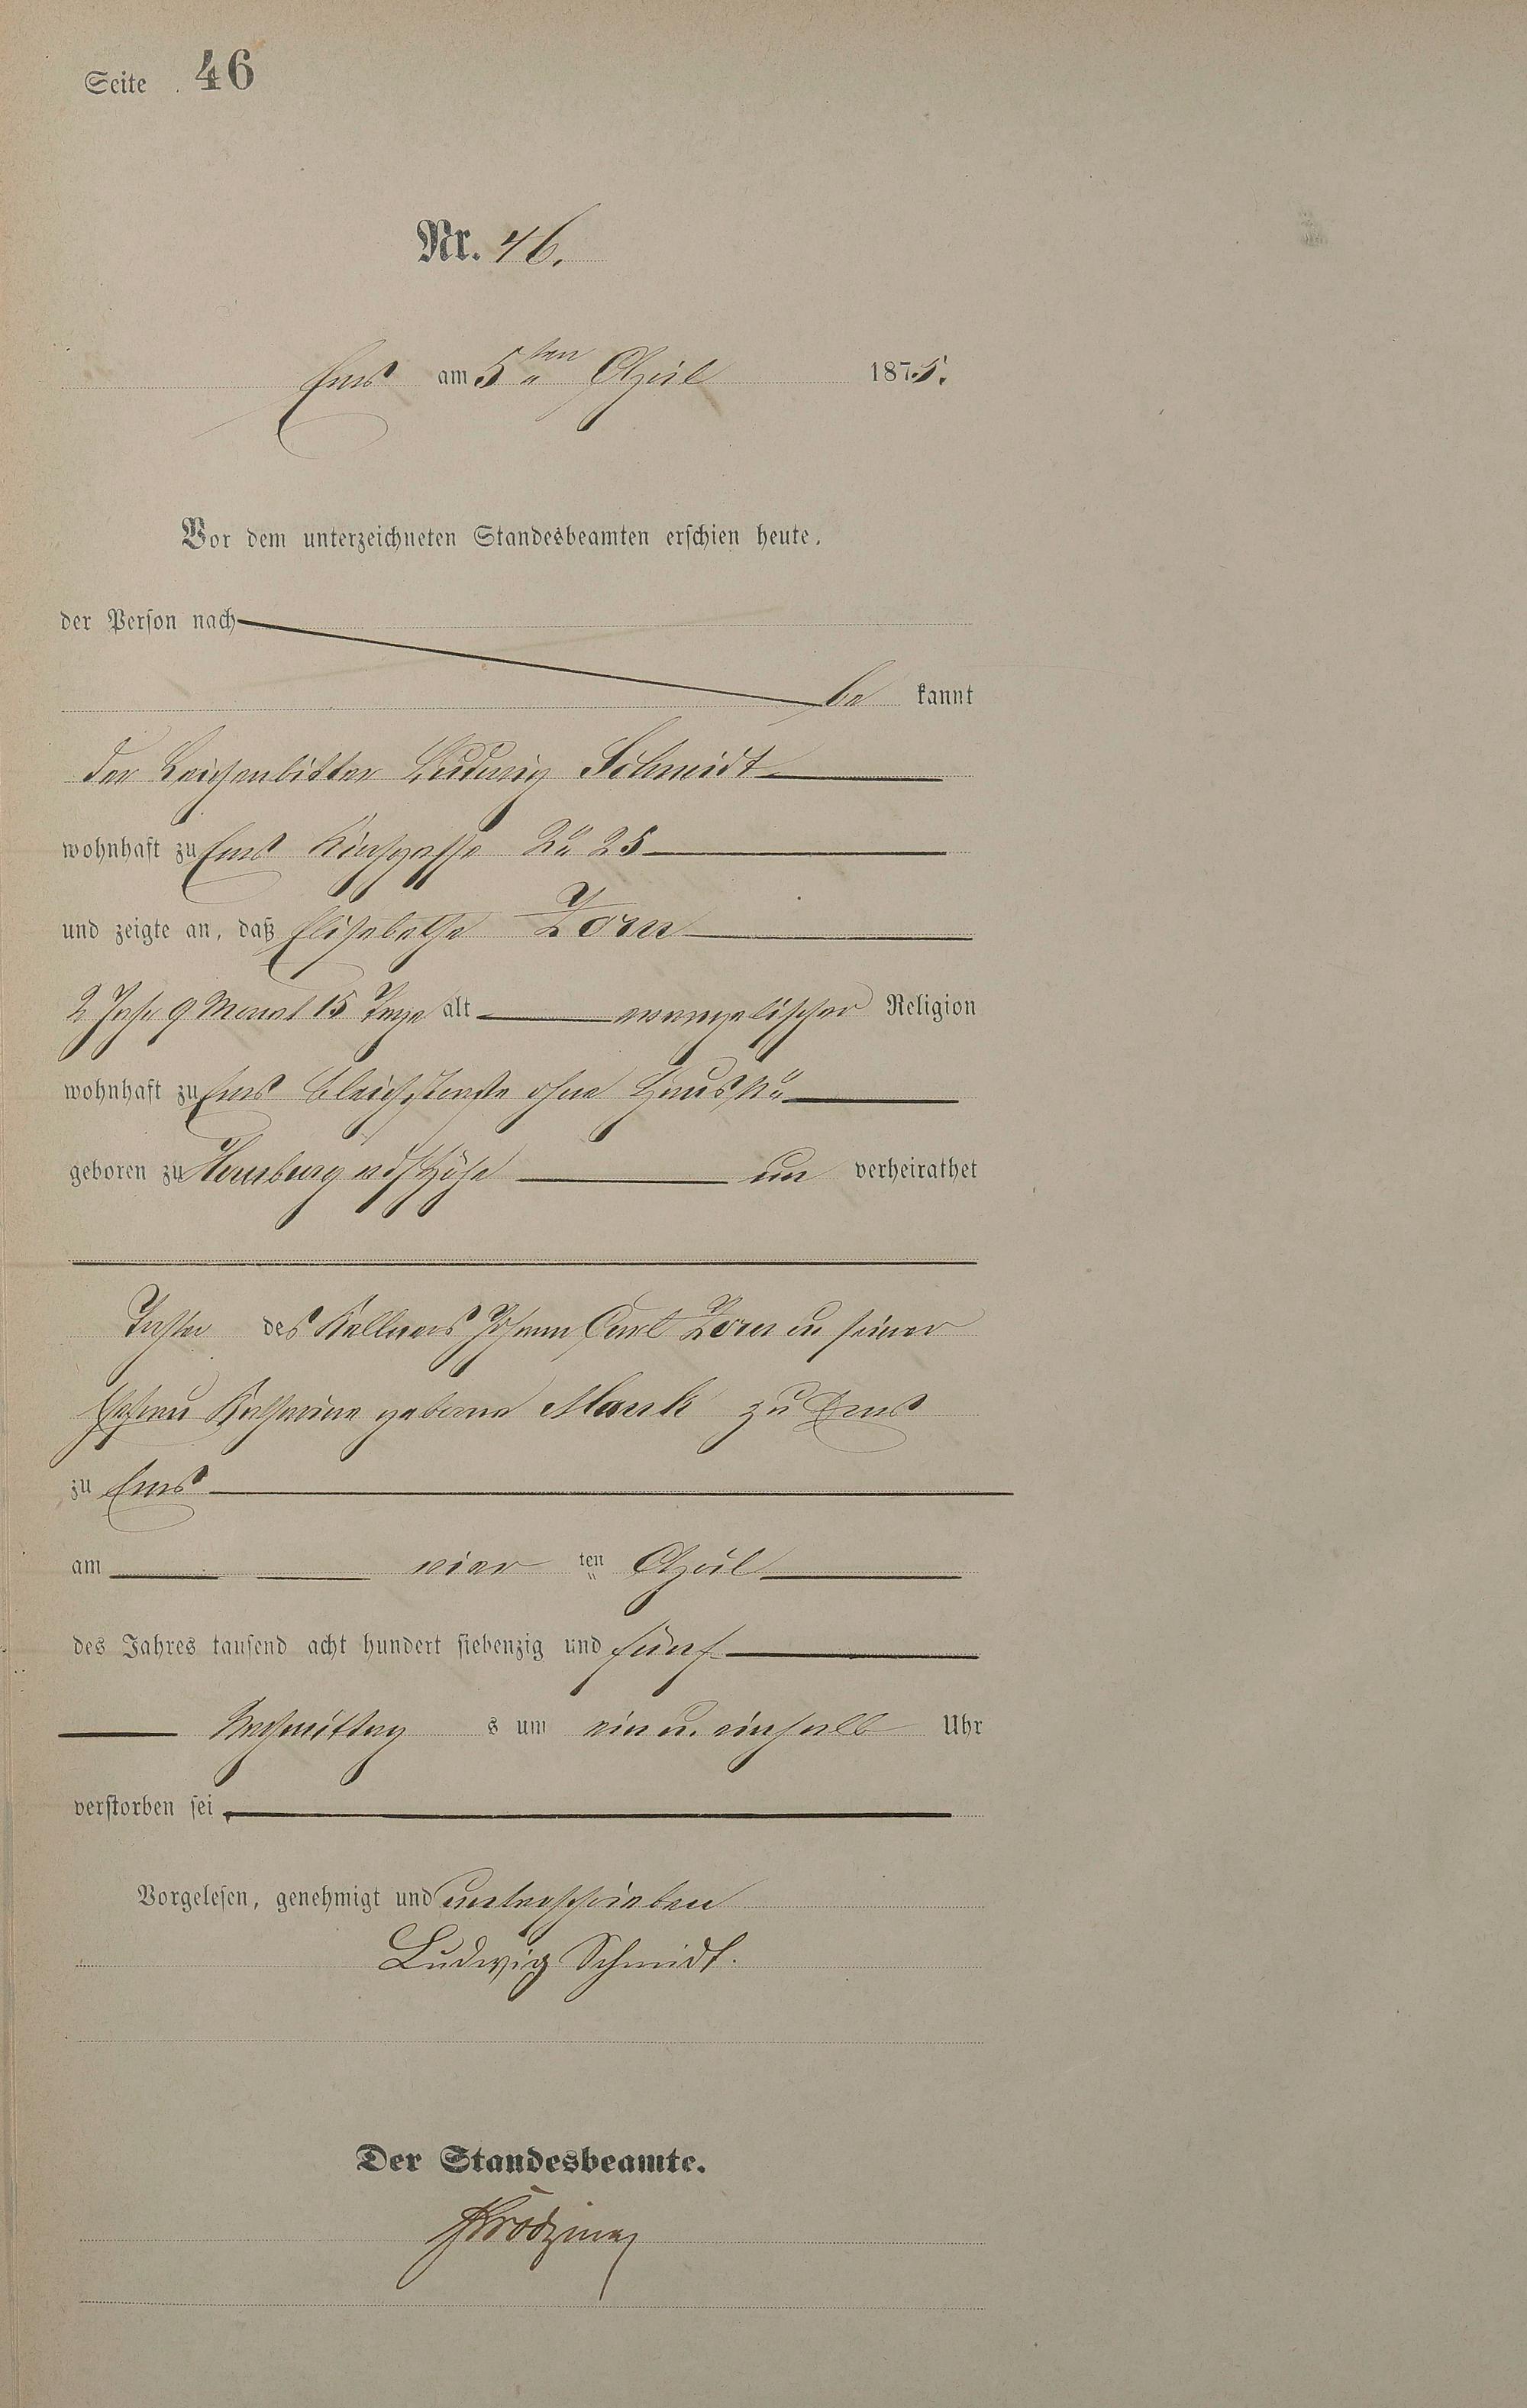 Seite 46
Nr. 46.
Ems am 5ten April 1875.
Vor dem unterzeichneten Standesbeamten erschien heute,
der Person nach
be kannt
der Leichenbitter Ludwig Schmidt
wohnhaft zu Ems Kirchgasse No 25
und zeigte an, daß Elisabethe Zorn
2 Jahr 9 Monat 15 Tage alt evangelischer Religion
wohnhaft zu Ems Bleichstraße ohne Haus No
geboren zu Homburg v d Höhe un verheirathet
Tochter des Kellners Johann Carl Zorn u seiner
Ehefrau Katharine geborne Mank zu Ems
zu Ems
am vier ten April
des Jahres tausend acht hundert siebenzig und fünf
Nachmittag s um ein u. einhalb Uhr
verstorben sei
Vorgelesen, genehmigt und unterschrieben
Ludwig Schmidt.
Der Standesbeamte.